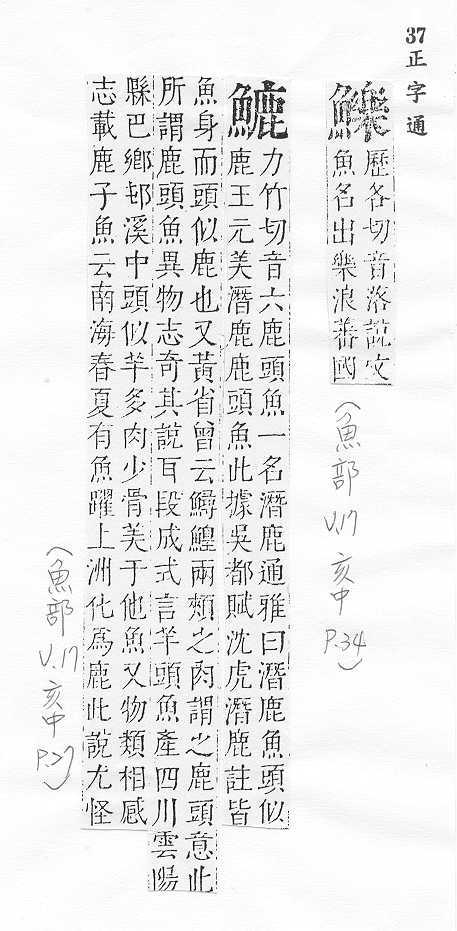 37 正字通
鱳
歷各切音落說文
魚名出樂浪潘國
(魚部 V.17 亥中 P.34)
鏕
力竹切音六鹿頭魚一名潛鹿通雅曰潛鹿魚頭似
鹿王元美潛鹿鹿頭魚此據吳都賦沈虎潛鹿註皆
魚身而頭似鹿也又黃省曾云鱘鰉兩頰之肉謂之鹿頭意此
所謂鹿頭魚異物志奇其說耳段成式言羊頭魚產四川雲陽
縣巴鄉邨溪中頭似羊多肉少骨美于他魚又物類相感
志載鹿子魚云南海春夏有魚躍上洲化爲鹿此說尤怪
(魚部 V.17 亥中 P.27)